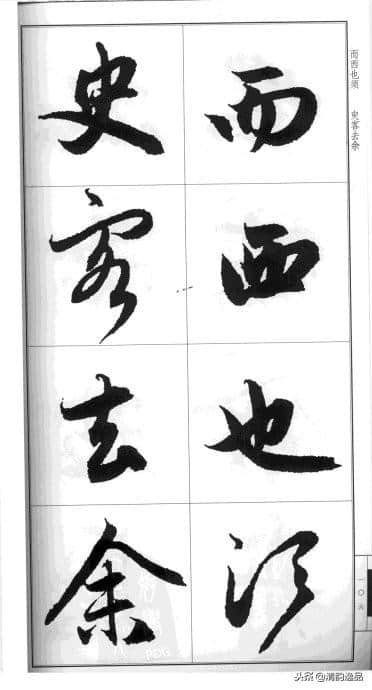 而西也须 史客去余
而
西
也
须
史
客
去
余
一〇六
PDG
头条@清韵逸品